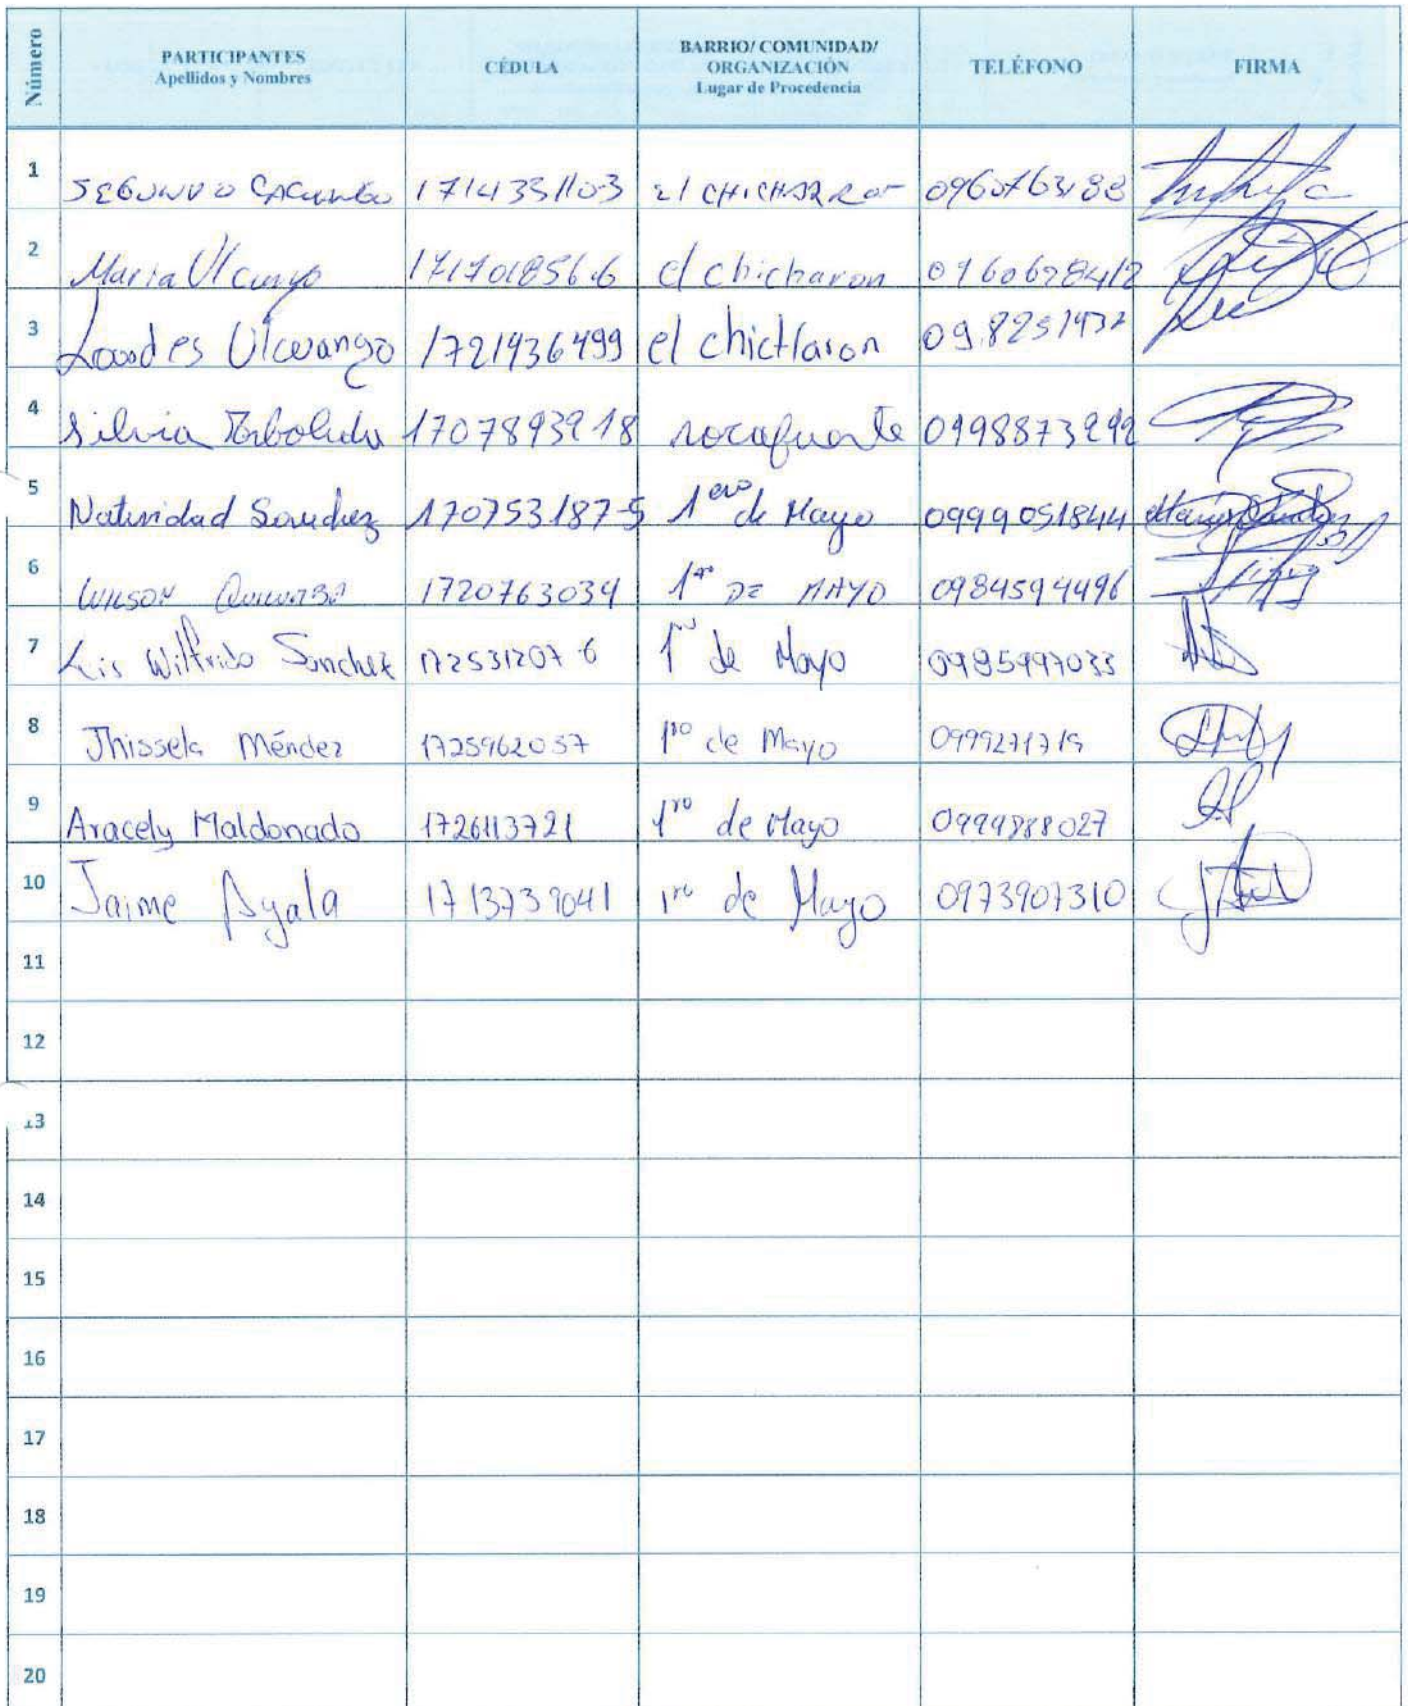 Número PARTICIPANTES Apellidos y Nombres CÉDULA BARRIO/ COMUNIDAD/ ORGANIZACIÓN Lugar de Procedencia TELÉFONO FIRMA
1 SEGUNDO 171433110-3 El
2 Maria Ulcungo 171701856-6 el chicharon 0960678412
3 Lourdes Ulcuango 1721936499 el chicharon 09.8251937
4 Silvia 1707893918 rocafuerte 0998873292
5 Natividad Sanchez 170753187-5 1ero de Mayo 0999051844
6 WILSON 1720763034 1ro DE MAYO 0984594496
7 Lis Wilfrido Sanchez 172531207-6 1ro de Mayo 0985997033
8 Jhissela Méndez 1725962057 1ro de Mayo 0999271719
9 Aracely Maldonado 1726113721 1ro de Mayo 0999888027
10 Jaime Ayala 1713739041 1ro de Mayo 0973907310
11
12
13
14
15
16
17
18
19
20